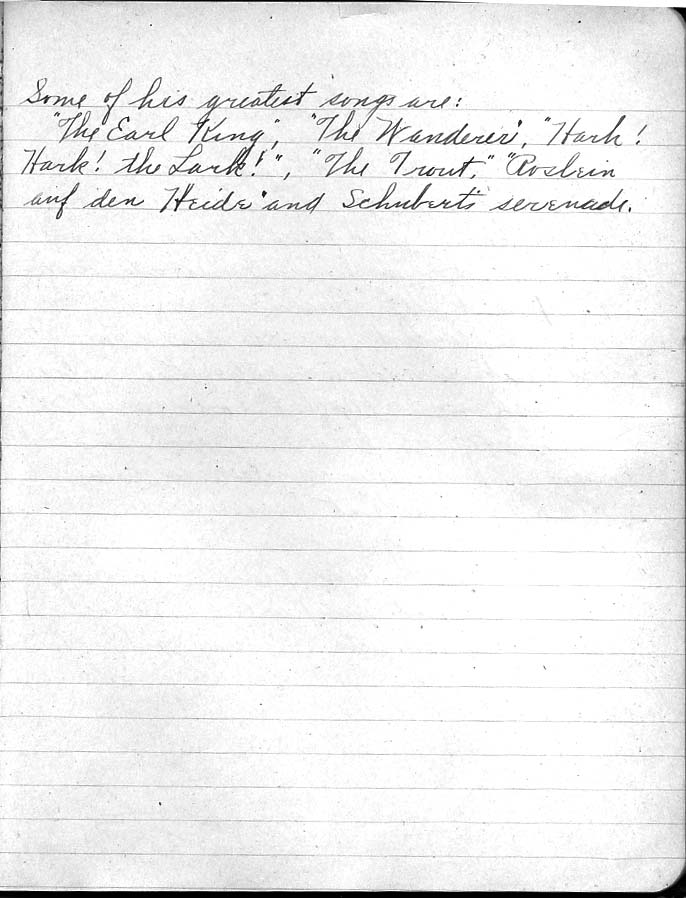 Some of his greatest songs are:
"The Earl King", "The Wanderer", "Hark!
Hark! the Lark!", "The Trout," "Roslein
auf den Heide" and Schubert's serenade.